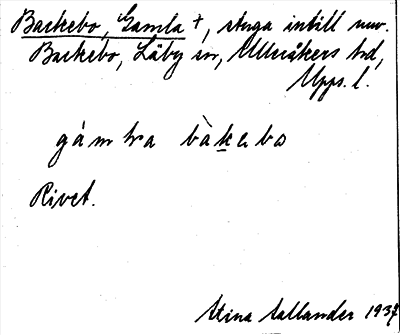 Backebo, Gamla †, stuga intill nuv.
Backebo, Läby sn, Ulleråkers hd,
Upps. l.
gámbra bàkebo
Rivet.
Stina Sallander 1937